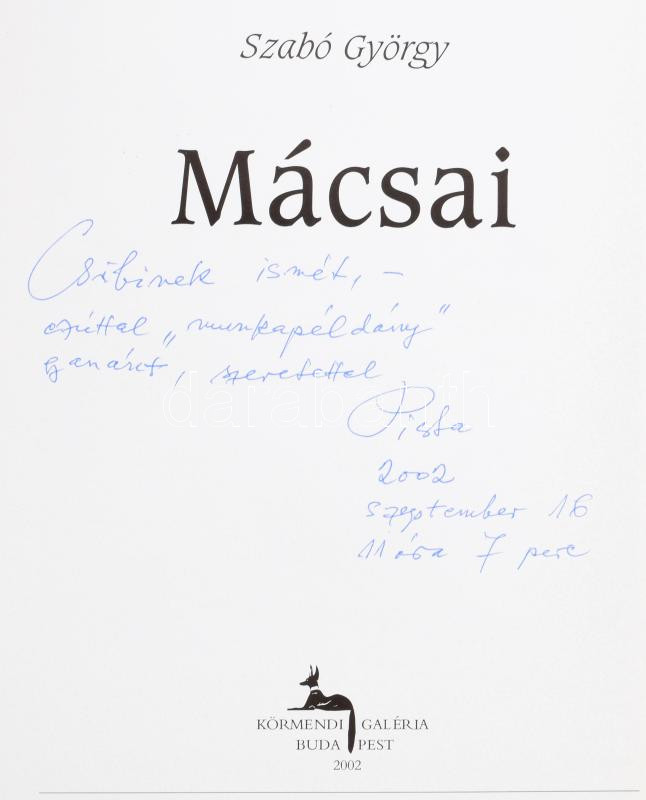 Szabó György
Mácsai
Csibinek ismét, –
ezúttal „munkapéldány"
gyanánt, szeretettel
Pista
2002
szeptember 16
11 óra 7 perc
KÖRMENDI GALÉRIA
BUDA PEST
2002